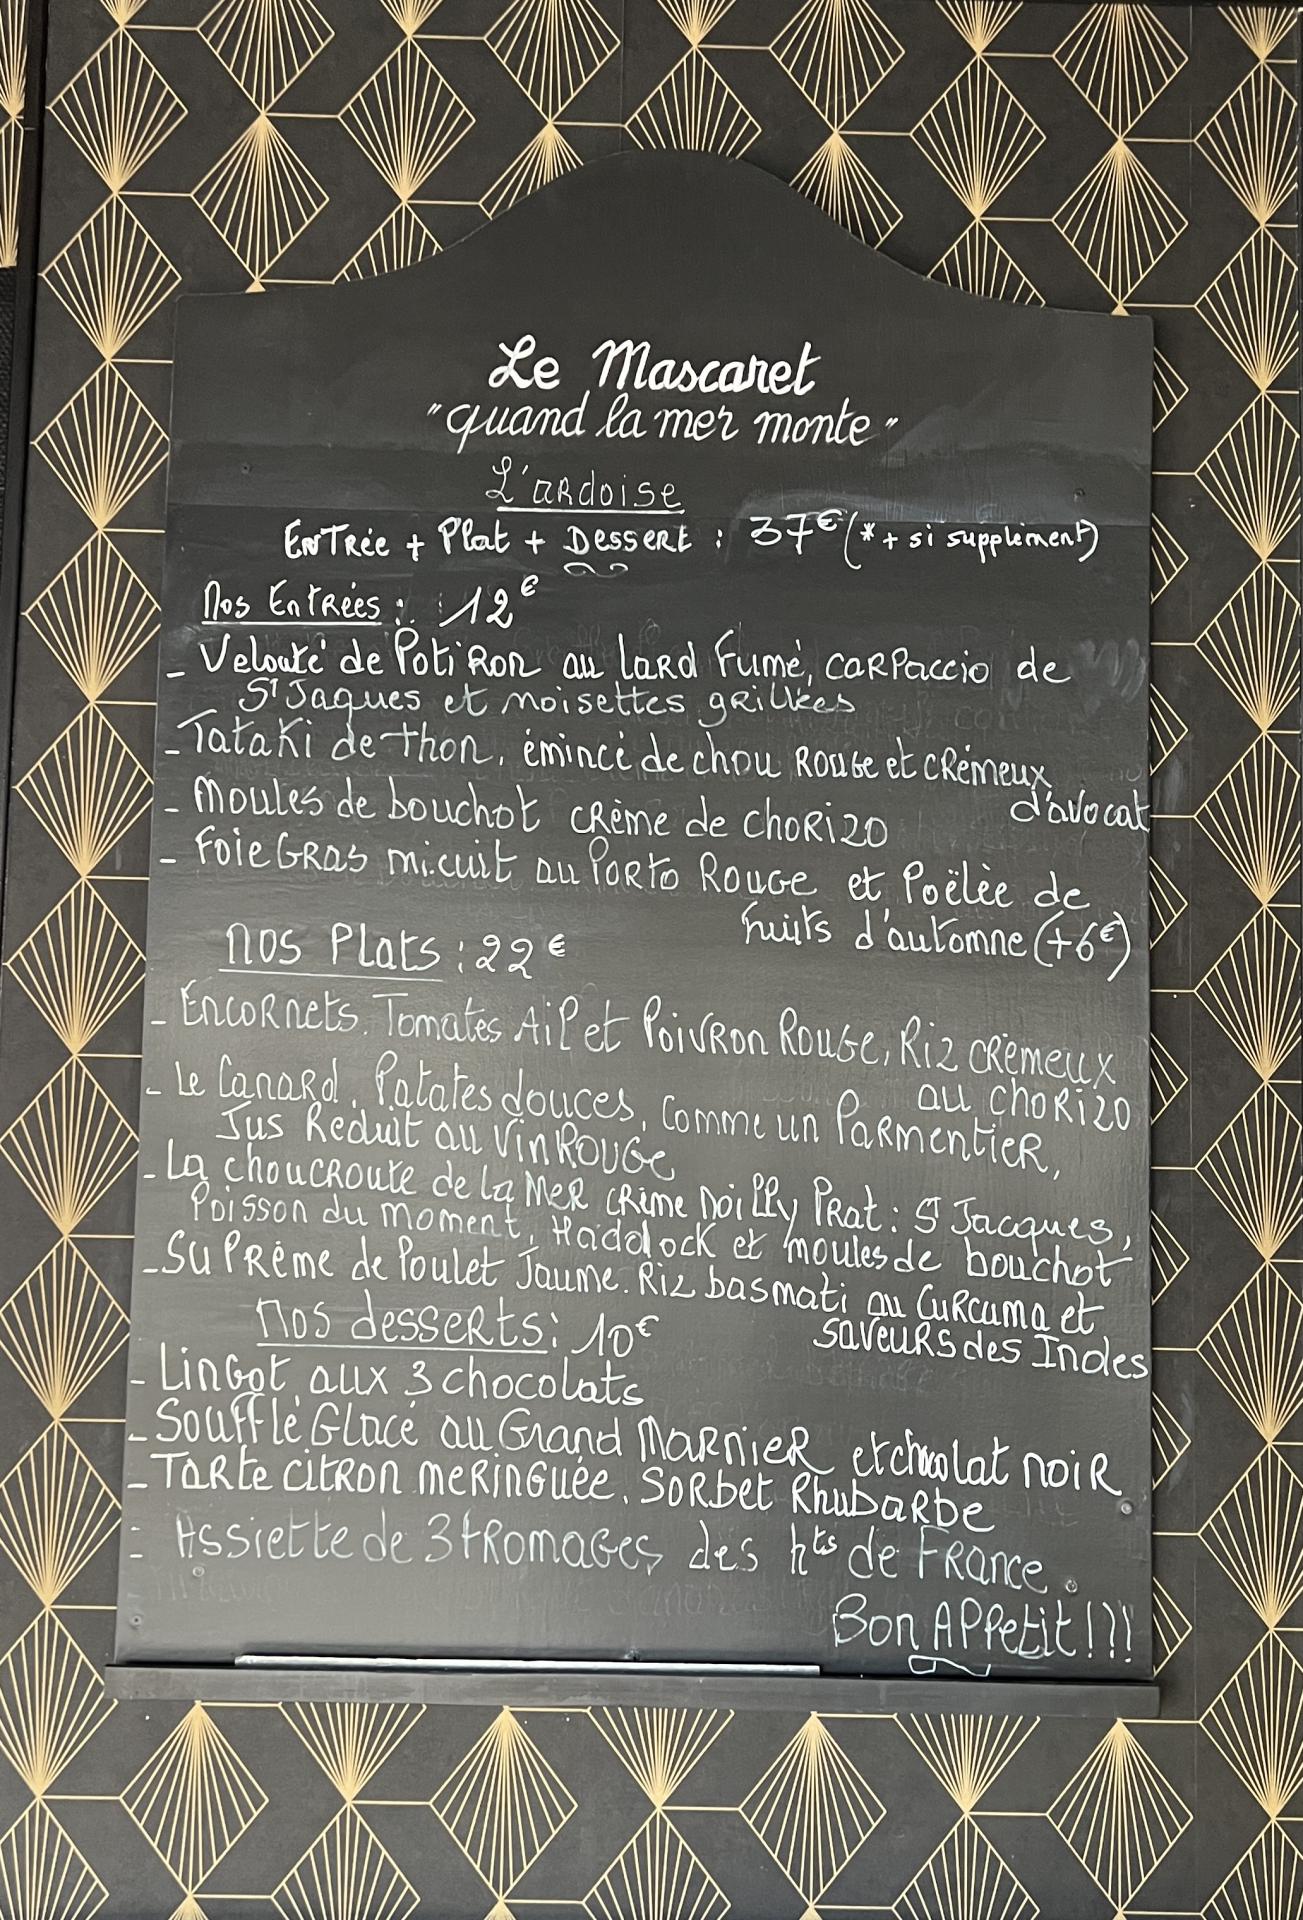 Le Mascaret
"quand la mer monte"
L'ardoise
Entrée + Plat + Dessert : 37€ (* + si supplément)
Nos Entrées : 12€
- Velouté de Potiron au lard Fumé, carpaccio de
St Jaques et noisettes grillées
- Tataki de thon, émincé de chou Rouge et crémeux
d'avocat
- Moules de bouchot crème de chorizo
- Foie Gras mi.cuit au Porto Rouge et Poëlée de
fruits d'automne (+6€)
Nos Plats : 22€
- Encornets. Tomates Ail et Poivron Rouge, Riz crémeux
au chorizo
- Le Canard, Patates douces, Comme un Parmentier,
Jus Reduit au Vin Rouge
- La choucroute de la Mer crème Noilly Prat : St Jacques,
Poisson du moment, Haddock et moules de bouchot
- Suprême de Poulet Jaune. Riz basmati au Curcuma et
saveurs des Indes
Nos desserts : 10€
- Lingot aux 3 chocolats
- Soufflé Glacé au Grand Marnier et chocolat noir
- Tarte citron meringuée. Sorbet Rhubarbe
- Assiette de 3 fromages des hts de France.
Bon Appetit !!!